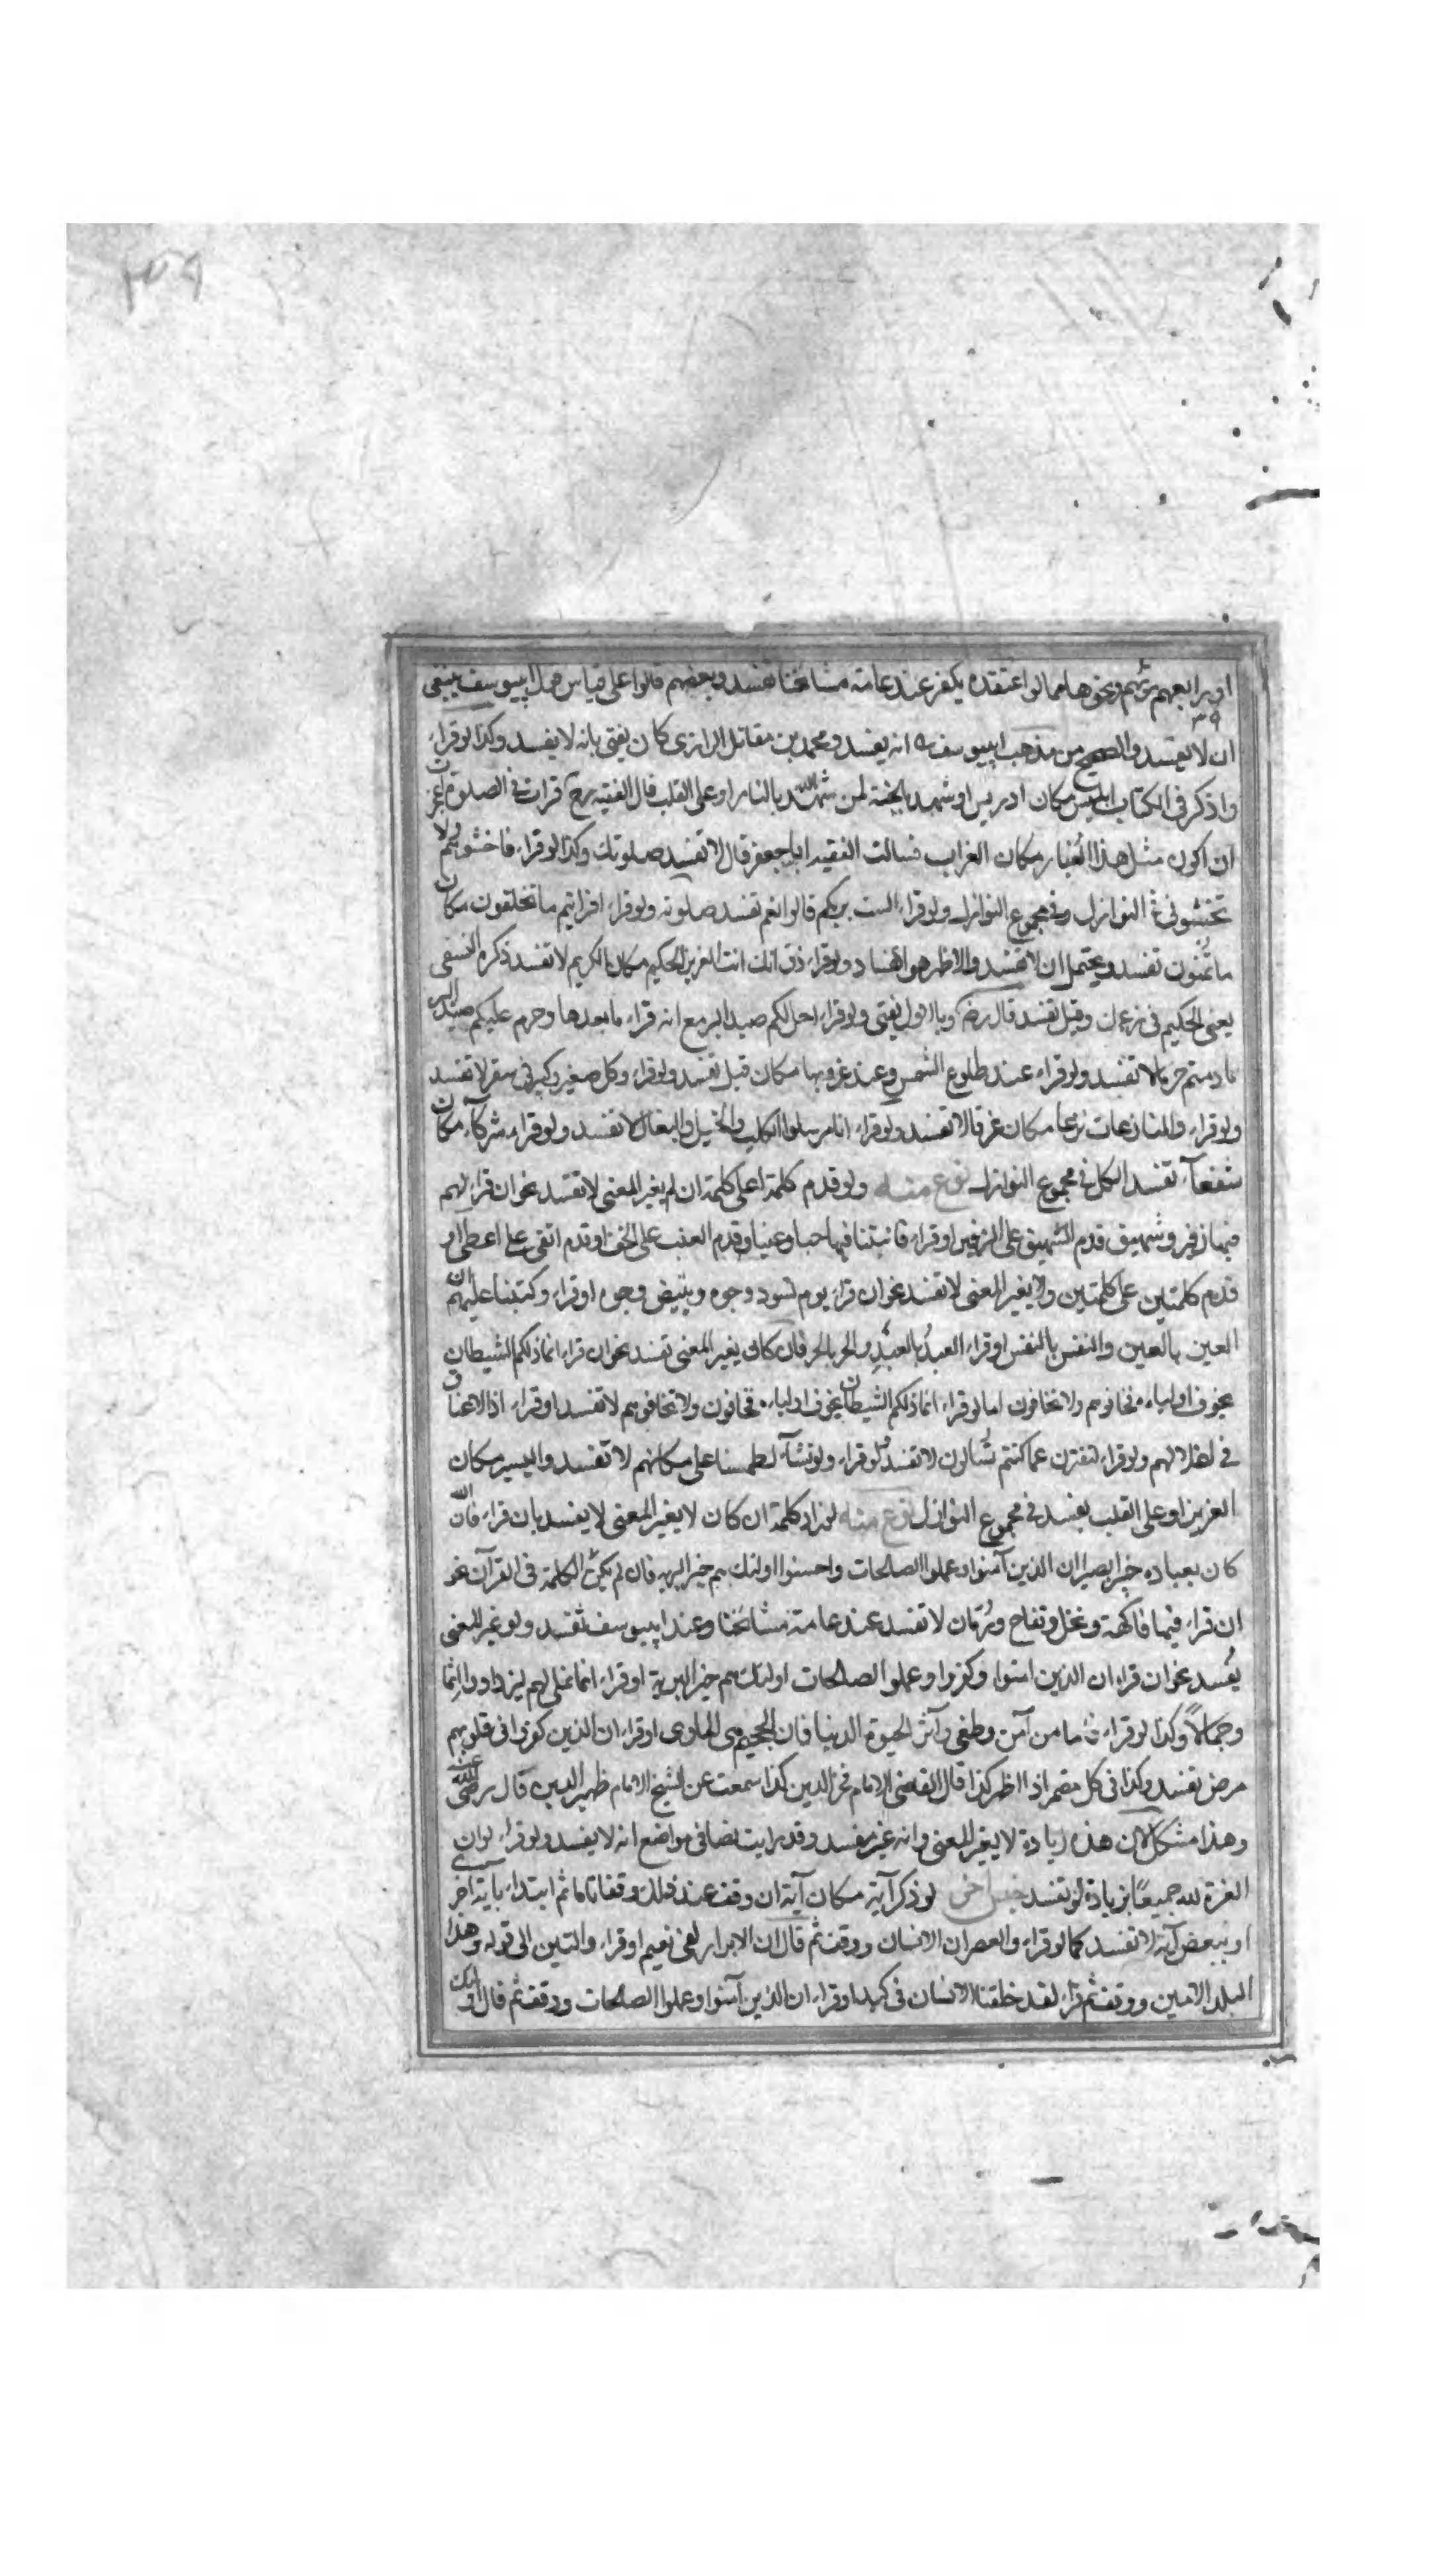 ٣٥٩
او رابعهم ونحوها مما لو اعتقده يكفر عند عامة مشايخنا تفسد وبعضهم قالوا على قياس قول ابيوسف ينبغى
٣٩
ان لا تفسد والصحيح من مذهب ابيوسف انه يفسد ومحمد بن مقاتل الرازى كان يفتى بانه لا يفسد وكذا لو قراء
واذكر فى الكتاب ابليس مكان ادريس او شهد بالجنة لمن شهد الله بالنار او على القلب قال الفقيه رح قرات فى الصلوة اعجزت
ان اكون مثل هذا الغبار مكان الغراب فسالت الفقيه ابا جعفر قال لا تفسد صلوتك وكذا لو قراء فاخشوهم ولا
تخشونى النوازل وفى مجموع النوازل ولو قراء الست بربكم قالوا نعم تفسد صلوته ولو قراء افرايتم ما تخلقون مكان
ما تمنون تفسد ويحتمل ان لا تفسد والاظهر هو الفساد ولو قراء ذق انك انت العزيز الحكيم مكان الكريم لا تفسد ذكره النسفى
يعنى الحكيم فى زعمك وقيل تفسد قال رضه وبالاول يفتى ولو قراء احل لكم صيد البر مع انه قراء ما بعدها وحرم عليكم صيد البر
ما دمتم حرما لا تفسد ولو قراء عند طلوع الشمس وعند غروبها مكان قبل تفسد ولو قراء وكل صغير وكبير فى سقر لا تفسد
ولو قراء والنازعات نزعا مكان غرقا لا تفسد ولو قراء انا مرسلوا الكلب والخيل والبغال لا تفسد ولو قراء شركآء مكان
شفعآء تفسد الكل فى مجموع النوازل نوع منه ولو قدم كلمة على كلمة ان لم يغير المعنى لا تفسد نحو ان قراء لهم
فيها زفير وشهيق قدم الشهيق على الزفير او قراء فانبتنا فيها حبا وعنبا وقدم العنب على الحب او قدم اتقى على اعطى او
قدم كلمتين على كلمتين ولا يغير المعنى لا تفسد نحو ان قراء يوم تسود وجوه وتبيض وجوه او قراء وكتبنا عليهم ان
العين بالعين والنفس بالنفس او قراء العبد بالعبد والحر بالحر فان كان يغير المعنى تفسد نحو ان قراء انما ذلكم الشيطان
يخوف اولياءه فخافوهم ولا تخافون اما لو قراء انما ذلكم الشيطان يخوف اولياءه فخافون ولا تخافوهم لا تفسد او قراء اذ الاعناق
فى اغلالهم ولو قراء لتفترن عما كنتم تسالون لا تفسد ولو قراء ولو نشآء لطمسنا على مكانهم لا تفسد واليسير مكان
العزيز او على القلب يفسد فى مجموع النوازل نوع منه لو زاد كلمة ان كان لا يغير المعنى لا يفسد بان قراء فان الله
كان بعباده خبيرا بصيرا ان الذين آمنوا وعملوا الصالحات واحسنوا اولئك هم خير البريه فان لم يكن الكلمة فى القرآن نحو
ان قراء فيها فاكهة ونخل وتفاح ورمان لا تفسد عند عامة مشايخنا وعند ابيوسف تفسد ولو غير المعنى
يفسد نحو ان قراء ان الذين امنوا وكفروا وعملوا الصلحات اولئك هم خير البرية او قراء انما نملى لهم ليزدادوا اثما
وجمالاً وكذا لو قراء فاما من آمن وطغى وآثر الحيوة الدنيا فان الجحيم هى الماوى او قراء ان الذين كفروا فى قلوبهم
مرض تفسد وكذا فى كل مضمر اذا اظهر كذا قال القاضى الامام فخر الدين كذا سمعت عن الشيخ الامام ظهير الدين قال رضى الله عنه
وهذا مشكل لان هذه زيادة لا يغير المعنى وانه غير مفسد وقد رايت نصا فى مواضع انه لا يفسد ولو قراء لو ان
العزة لله جميعاً بزيادة لو تفسد جنس اخر لو ذكر آية مكان آية ان وقف عند ذلك وقفا تاما ثم ابتداء باية اخرى
او ببعض آية لا تفسد كما لو قراء والعصر ان الانسان ووقف ثم قال ان الابرار لفى نعيم او قراء والتين الى قوله وهذا
البلد الامين ووقف ثم قراء لقد خلقنا الانسان فى كبد او قراء ان الذين آمنوا وعملوا الصلحات ووقف ثم قال اولئك